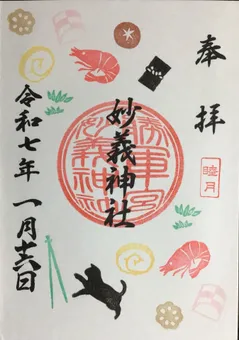 奉拝
睦月
妙義神社
令和七年 一月十六日